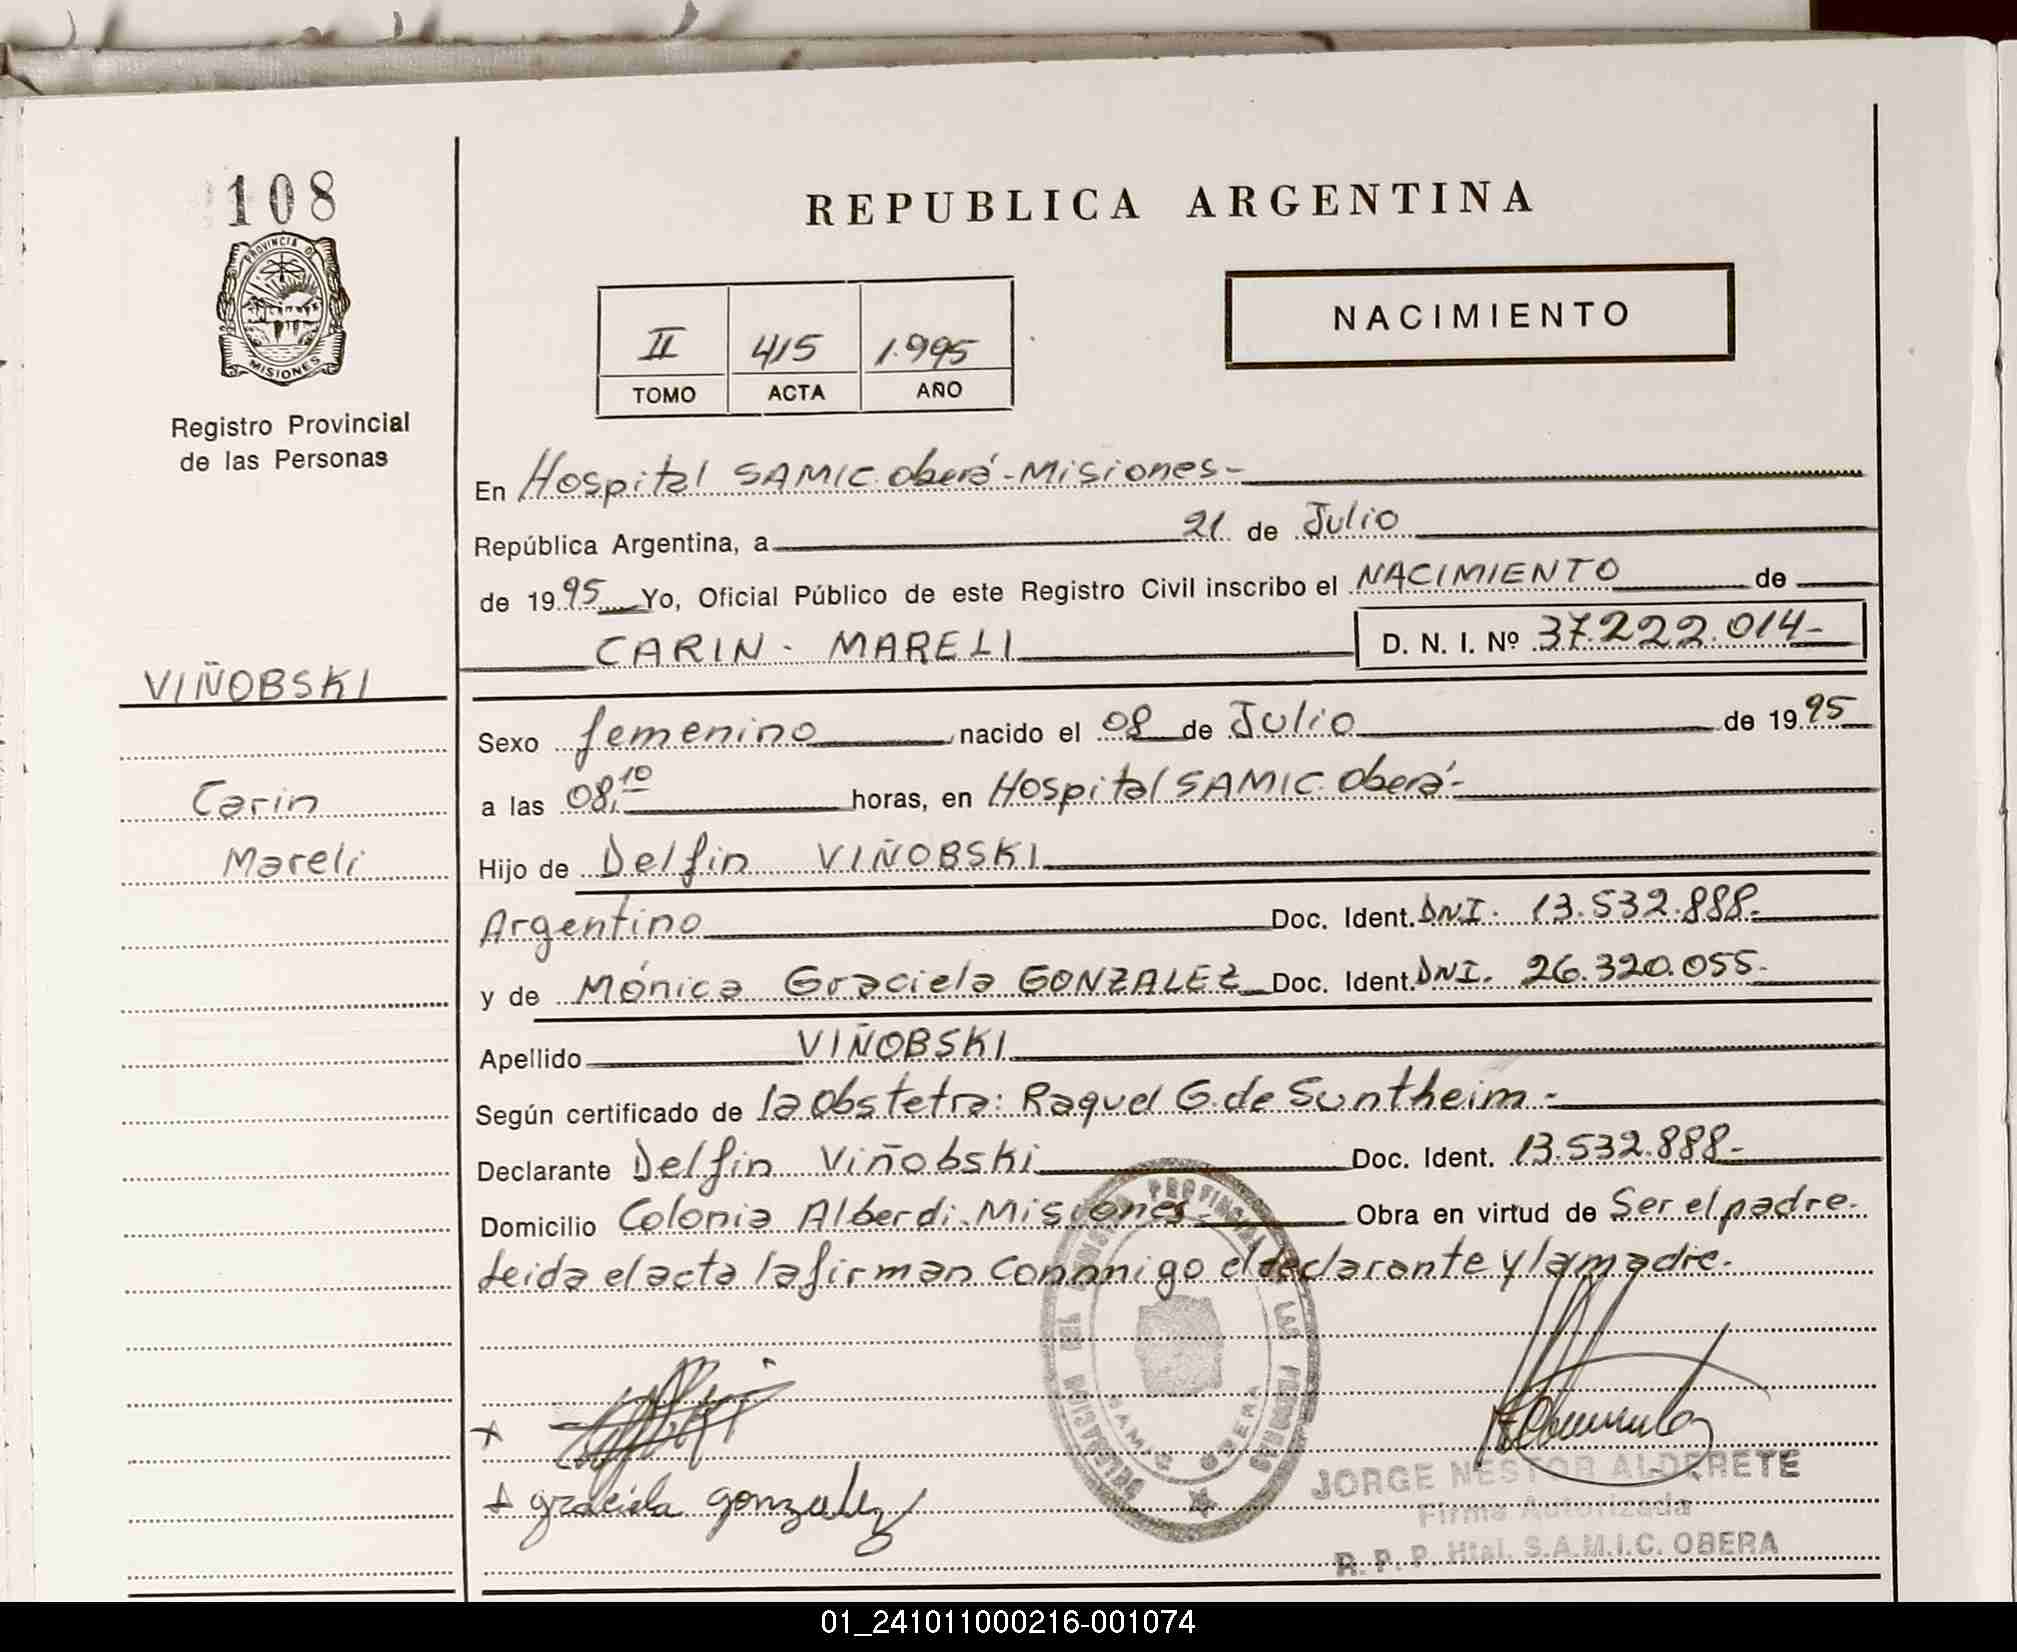 108
PROVINCIA D
MISIONES
Registro Provincial
de las Personas
VIÑOBSKI
Carin
Mareli
REPUBLICA ARGENTINA
II 415 1.995
TOMO ACTA AÑO
NACIMIENTO
En Hospital SAMIC. Oberá - Misiones -
República Argentina, a 21 de Julio
de 1995 Yo, Oficial Público de este Registro Civil inscribo el NACIMIENTO de
CARIN - MARELI D. N. I. Nº 37.222.014-
Sexo femenino nacido el 08 de Julio de 1995
a las 08,10 horas, en Hospital SAMIC. Oberá -
Hijo de Delfin VIÑOBSKI
Argentino Doc. Ident. DNI. 13.532.888-
y de Mónica Graciela GONZALEZ Doc. Ident. DNI. 26.320.055-
Apellido VIÑOBSKI
Según certificado de la Obstetra: Raquel G. de Suntheim -
Declarante Delfin Viñobski Doc. Ident. 13.532.888-
Domicilio Colonia Alberdi. Misiones - Obra en virtud de Ser el padre.
Leida el acta la firman conmigo el declarante y la madre.
DELEGACION DEL REGISTRO PROVINCIAL DE LAS PERSONAS
SAMIC OBERA
graciela gonzalez
JORGE NESTOR ALDERETE
Firma Autorizada
R. P. P. Htal. S.A.M.I.C. OBERA
01_241011000216-001074